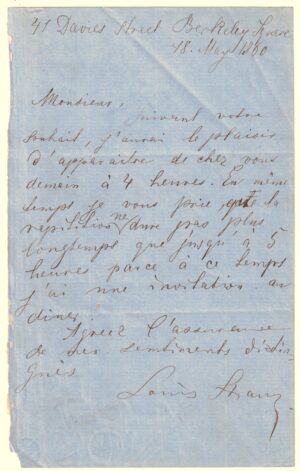 41 Davies Street Berkeley Square
18. May 1860
Monsieur,
Suivant votre
souhait, j'aurai le plaisir
d'apparaitre de chez vous
demain à 4 heures. En même
temps je vous prie que la
repitition ne dure pas plus
longtemps que jusqu'à 5
heures parce à ce temps
j'ai une invitation au
diner.
Agreez l'assurance
de mes sentiments distin-
gués
Louis Straus